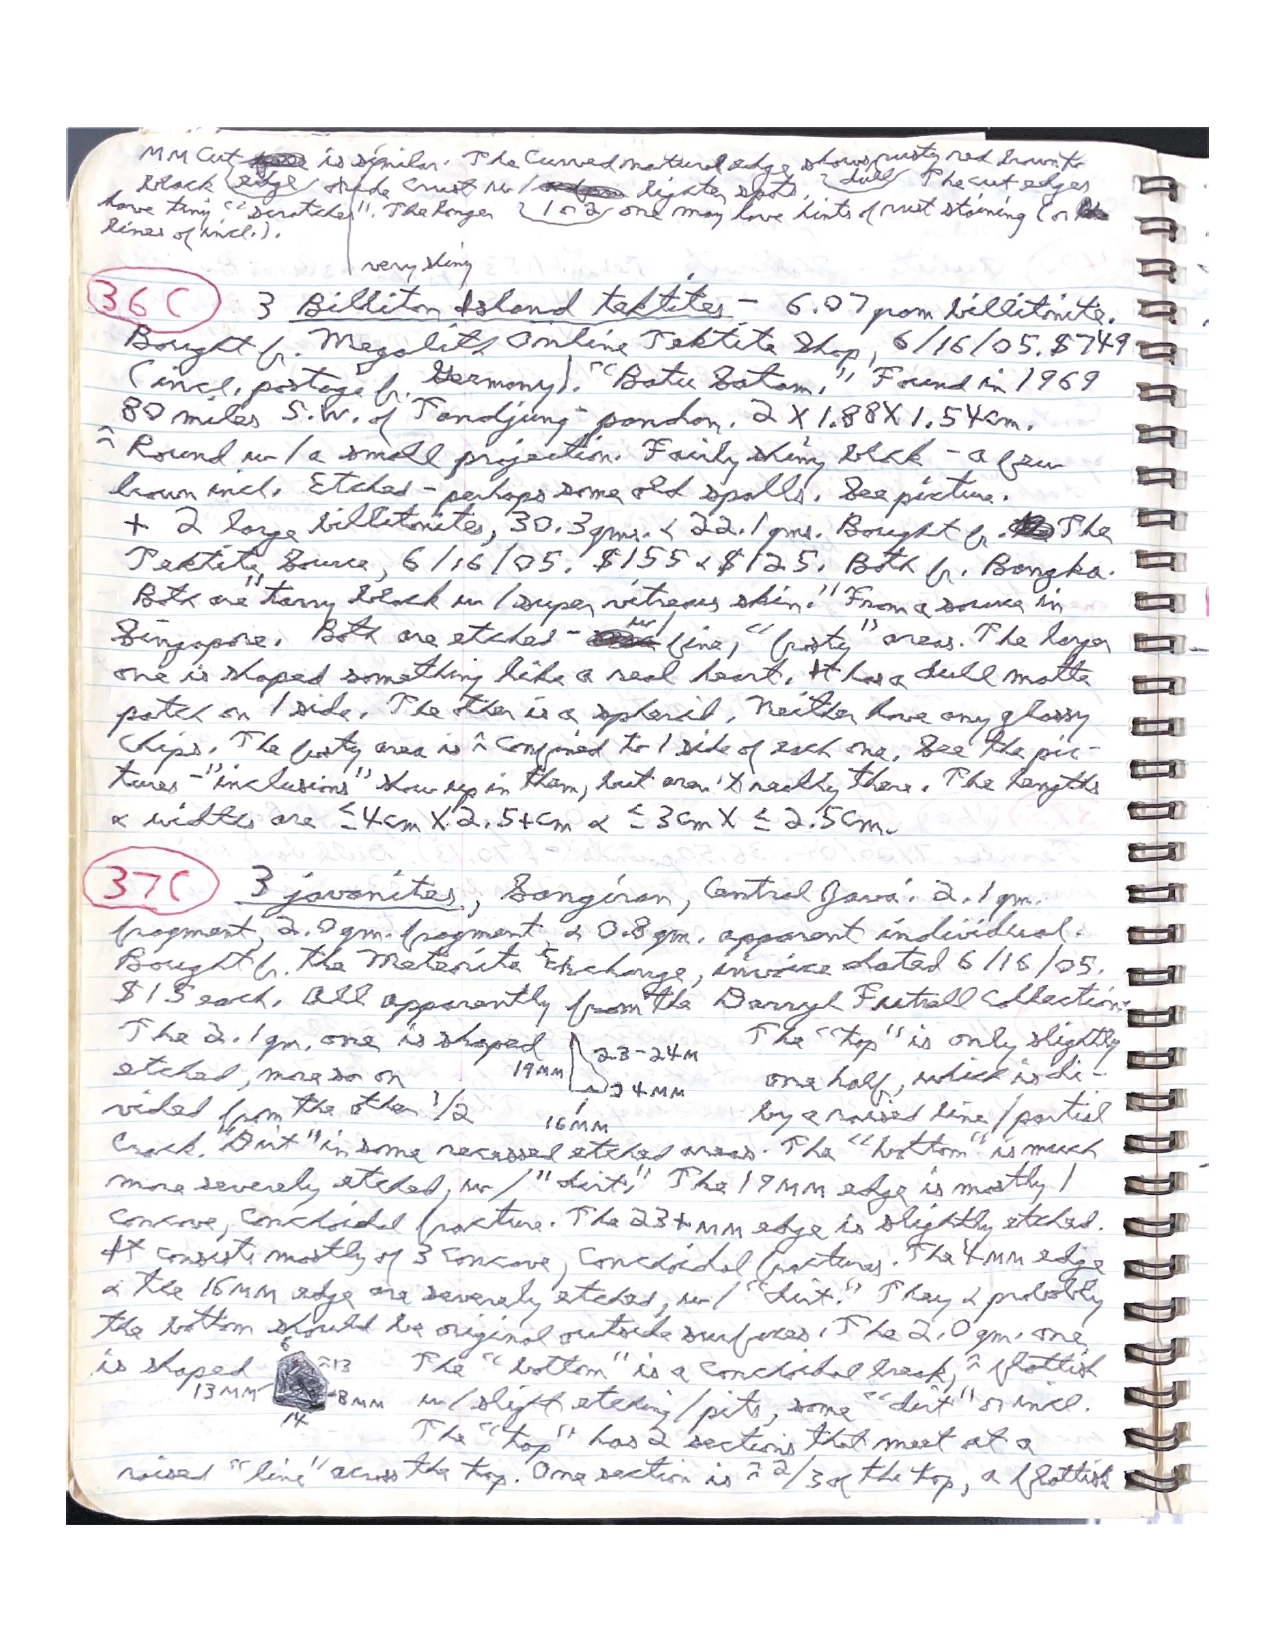 MM cut edge is similar. The curved natural edge shows rusty red brown to
black oxide crust w/ 1 or 2 lighter spots. dull The cut edges
have tiny "scratches". The longer one may have hints of rust staining (or
lines of incl.).
very shiny
36C 3 Billiton Island tektites - 6.07 gram billitonite.
Bought fr. Megalith Online Tektite Shop, 6/16/05. $749
(incl. postage fr. Germany). "Batu Satam." Found in 1969
80 miles S.W. of Tandjung-pandan. 2 X 1.88 X 1.54 cm.
≈ Round w/ a small projection. Fairly shiny black - a few
brown incl. Etched - perhaps some old spalls. See picture.
+ 2 large billitonites, 30.3 gms. & 22.1 gms. Bought fr. The
Tektite Source, 6/16/05. $155 & $125. Both fr. Bangka.
Both are "tarry black w/ super vitreous skin." From a source in
Singapore. Both are etched - w/ fine, "frosty" areas. The larger
one is shaped something like a real heart. It has a dull matte
patch on 1 side. The other is a spheroid. Neither have any glassy
chips. The frosty area is ≈ confined to 1 side of each one. See the pic-
tures - "inclusions" show up in them, but aren't really there. The lengths
& widths are ≤4cm X 2.5+cm & ≤3cm X ≤ 2.5cm.
37C 3 javanites, Sangiran, Central Java. 2.1 gm.
fragment, 2.0 gm. fragment, & 0.8 gm. apparent individual.
Bought fr. the Meteorite Exchange, invoice dated 6/16/05.
$15 each. All apparently from the Darryl Futrell Collection.
The 2.1 gm. one is shaped 19MM 23-24MM The "top" is only slightly
etched, more so on 4MM one half, which is di-
vided from the other 1/2 16MM by a raised line/partial
crack. "Dirt" in some recessed etched areas. The "bottom" is much
more severely etched, w/ "dirt." The 19MM edge is mostly 1
concave, conchoidal fracture. The 23+MM edge is slightly etched.
It consists mostly of 3 concave, conchoidal fractures. The 4MM edge
& the 16MM edge are severely etched, w/ "dirt." They & probably
the bottom should be original outside surfaces. The 2.0 gm. one
is shaped 6 ≈13 The "bottom" is a conchoidal break, ≈ flattish
13MM 8MM w/ slight etching/pits, some "dirt" or incl.
14 The "top" has 2 sections that meet at a
raised "line" across the top. One section is ≈ 2/3 of the top, a flattish